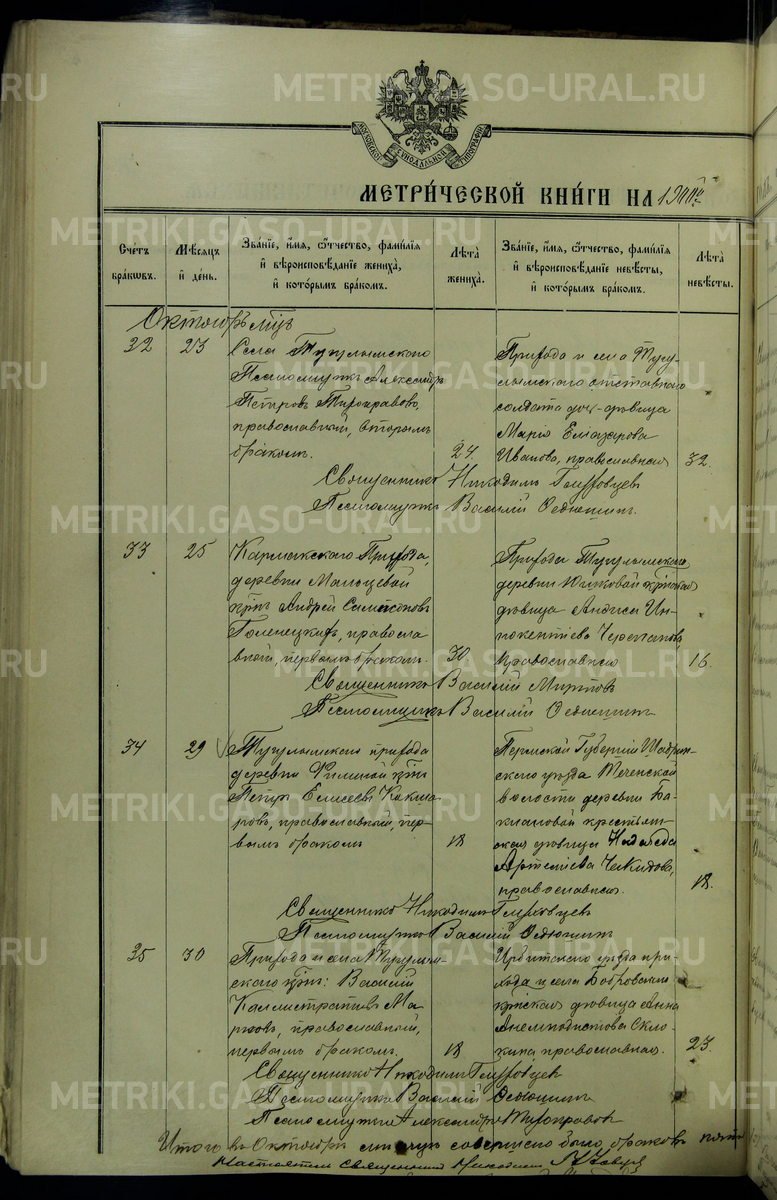 МОСКОВСКОЙ СѴНОДАЛЬНОЙ ТИПОГРАФІИ
МЕТРИ́ЧЕСКОЙ КНИ́ГИ НА 1900й
Сче́тъ бра́кѡвъ.
Мѣ́сяцъ и҆ де́нь.
Зва́нїе, и҆́мѧ, ѻ҆́тчество, фами́лїѧ и҆ вѣроисповѣ́данїе жениха̀, и҆ кото́рымъ бра́комъ.
Лѣ́та жениха̀.
Зва́нїе, и҆́мѧ, ѻ҆́тчество, фами́лїѧ и҆ вѣроисповѣ́данїе невѣ́сты, и҆ кото́рымъ бра́комъ.
Лѣ́та невѣ́сты.
Октябрь мцъ
32 23
Села Тугулымского
Псаломщикъ Александръ
Петровъ
православный, вторымъ
бракомъ.
24.
Прихода и села Тугу-
лымского отставного
солдата доч-дѣвица
Марія Елазарова
Иванова, православная
32.
Священникъ Никодимъ
Псаломщикъ Василий
33 25
Кармакского Прихода,
деревни Мальцевой
крн Андрей Самсоновъ
православный, первымъ бракомъ.
30
Прихода Тугулымского
деревни Юшковой крнская
дѣвица Анфиса Ин-
нокентіева Черепанова,
православная
16.
Священникъ Василий Миртовъ
Псаломщикъ Василий
34 29
Тугулымского прихода
деревни Филиной крн
Петръ Елисеевъ Какша-
ровъ, православный, пер-
вымъ бракомъ
18
Пермской Губерніи Шадрин-
ского уѣзда Теченской
волости деревни Ба-
клановой крестьян-
ская дѣвица Надежда
Артеміева
православная.
18.
Священникъ Никодимъ
Псаломщикъ Василий
35 30
Прихода и села Тугулым-
ского крн: Василий
Каллистратовъ Ма-
православный,
первымъ бракомъ.
18
Ирбитского уѣзда при-
хода и села Бобровского
крнская дѣвица Анна
Анемподистова Скло-
кина православная.
23.
Священникъ Никодимъ
Псаломщикъ Василий
Псаломщикъ Александръ
Итого въ Октябрѣ мѣсяцѣ совершено было браковъ пять
Настоятель Священникъ Никодимъ
METRIKI.GASO-URAL.RU